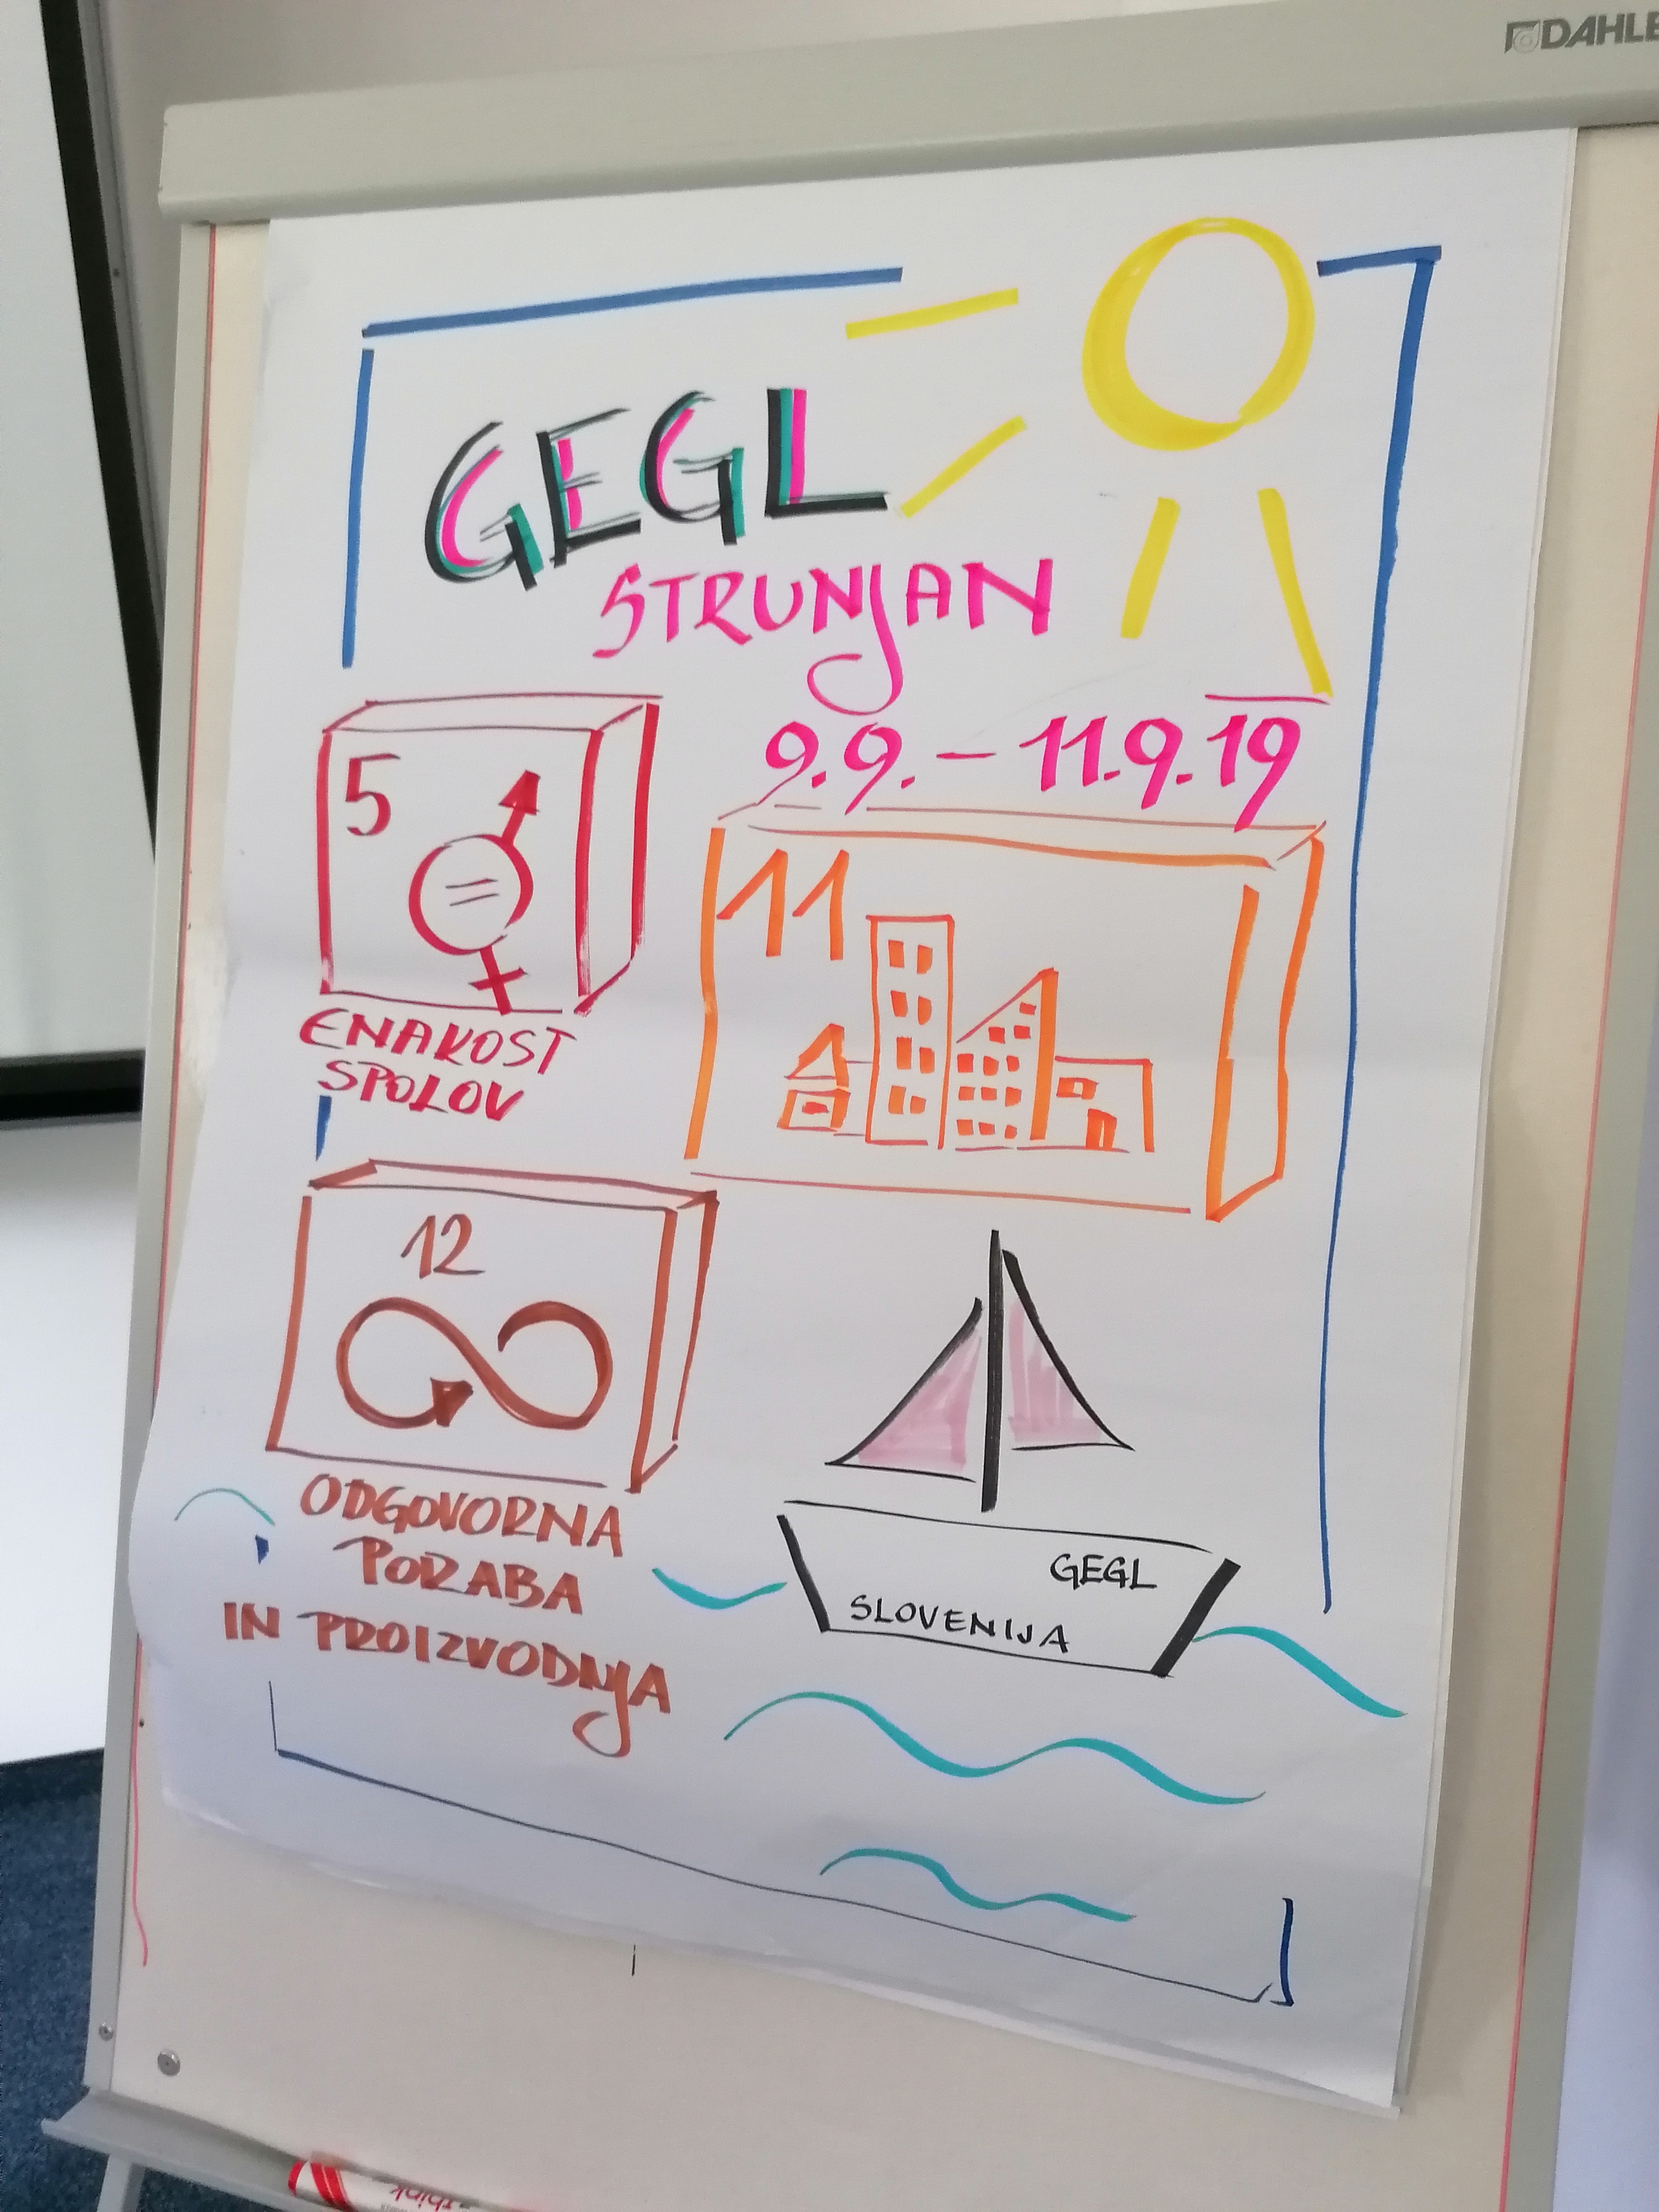 DAHLE
GEGL
STRUNJAN
9.9. – 11.9.19
5
ENAKOST
SPOLOV
11
12
ODGOVORNA
PORABA
IN PROIZVODNJA
GEGL
SLOVENIJA
think